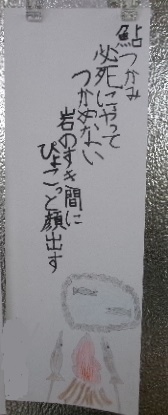 鮎つかみ
必死にやって
つかめない
岩のすき間に
ぴょこっと顔出す